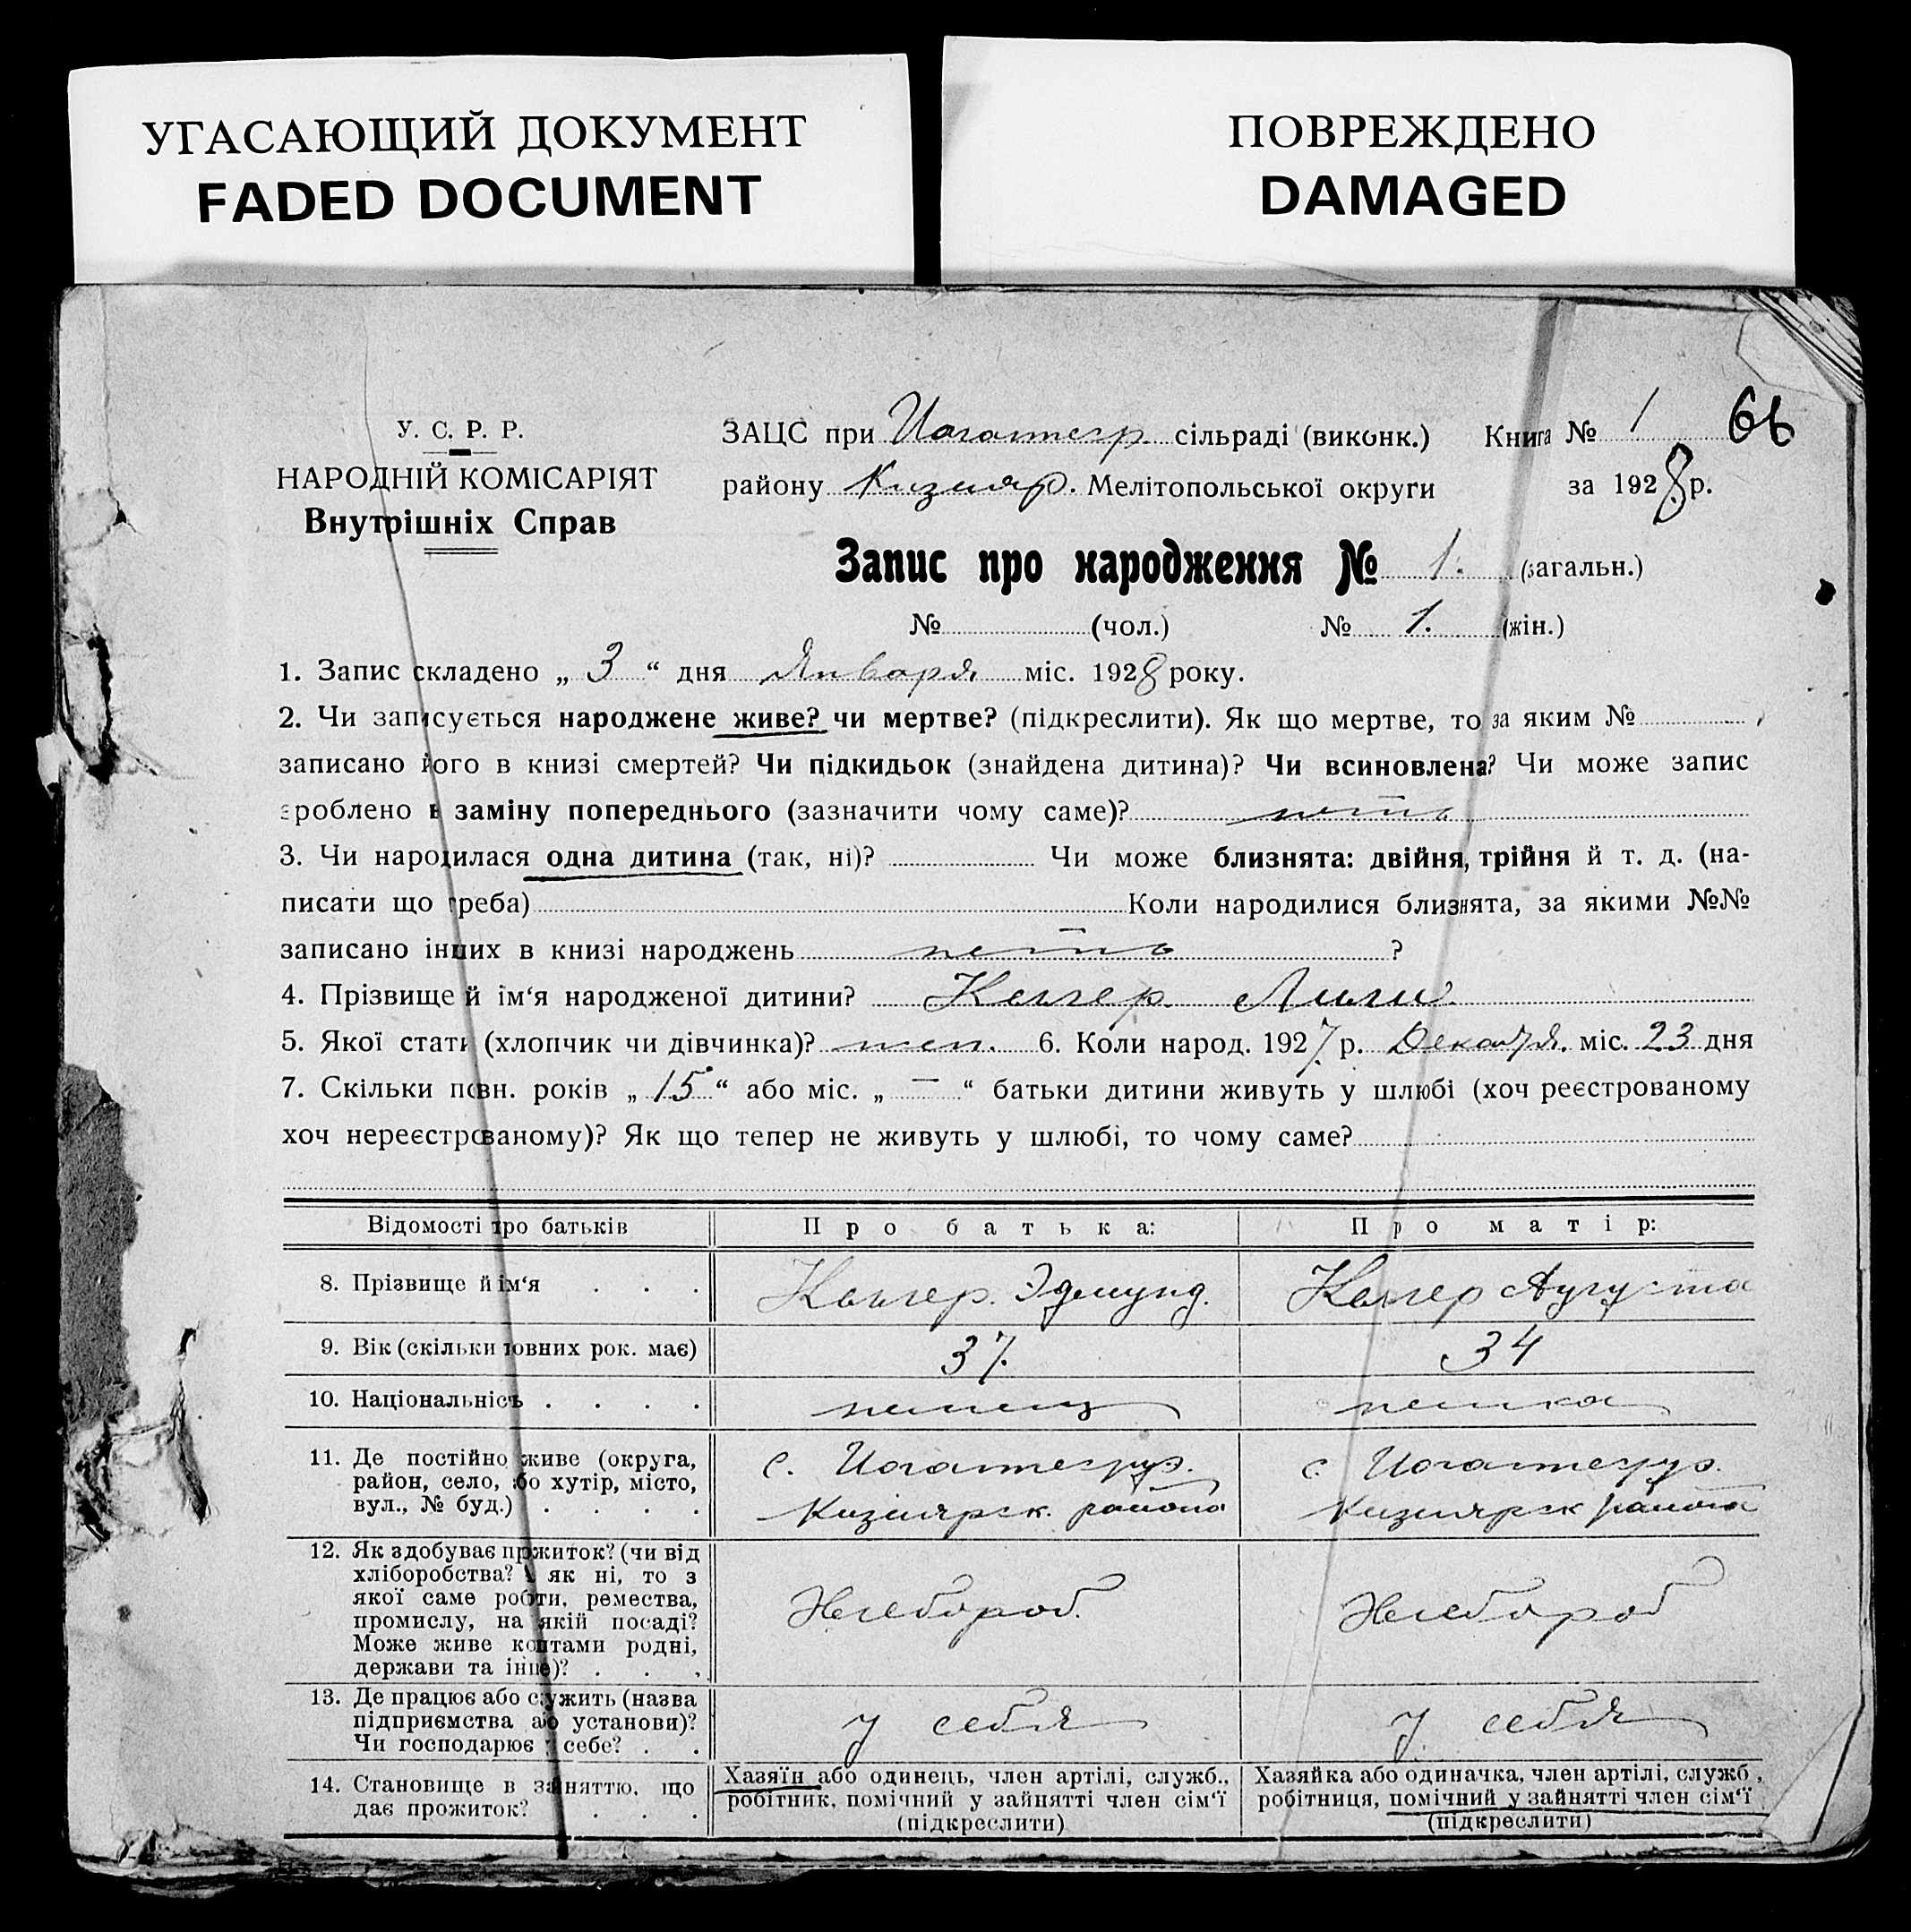 УГАСАЮЩИЙ ДОКУМЕНТ
FADED DOCUMENT
ПОВРЕЖДЕНО
DAMAGED
У. С. Р. Р.
НАРОДНІЙ КОМІСАРІЯТ
Внутрішніх Справ
ЗАЦС при сільраді (виконк.) Книга № 1 66
району Кизияр. Мелітопольської округи за 1928 р.
Запис про народження № 1. (загальн.)
№ (чол.) № 1. (жін.)
1. Запис складено „ 3 “ дня Января міс. 1928 року.
2. Чи записується народжене живе? чи мертве? (підкреслити). Як що мертве, то за яким №
записано його в книзі смертей? Чи підкидьок (знайдена дитина)? Чи всиновлена? Чи може запис
зроблено в заміну попереднього (зазначити чому саме)? нетъ
3. Чи народилася одна дитина (так, ні)? Чи може близнята: двійня, трійня й т. д. (на-
писати що треба) Коли народилися близнята, за якими №№
записано інших в книзі народжень нетъ ?
4. Прізвище й ім‘я народженої дитини? Келлер Лили
5. Якої статі (хлопчик чи дівчинка)? жен. 6. Коли народ. 1927 р. Декабря. міс. 23 дня
7. Скільки повн. років „ 15 “ або міс. „ — “ батьки дитини живуть у шлюбі (хоч реєстрованому
хоч нереєстрованому)? Як що тепер не живуть у шлюбі, то чому саме?
Відомості про батьків Про батька: Про матір:
8. Прізвище й ім‘я . . . Келлер. Эдмунд. Келлер Аугуста
9. Вік (скільки повних рок. має) 37. 34
10. Національність . . . . немец немка
11. Де постійно живе (округа,
район, село, або хутір, місто,
вул., № буд.) . . . .
с.
Кизиярск. района
с.
Кизиярск района
12. Як здобуває прожиток? (чи від
хліборобства? А як ні, то з
якої саме роботи, ремества,
промислу, на якій посаді?
Може живе коштами родні,
держави та інше)? . . .
Хлебороб. Хлебороб
13. Де працює або служить (назва
підприємства або установи)?
Чи господарює у себе? . .
у себя у себя
14. Становище в занняттю, що
дає прожиток? . . .
Хазяїн або одинець, член артілі, служб.,
робітник, помічний у зайнятті член сім‘ї
(підкреслити)
Хазяйка або одиначка, член артілі, служб.,
робітниця, помічний у зайнятті член сім‘ї
(підкреслити)